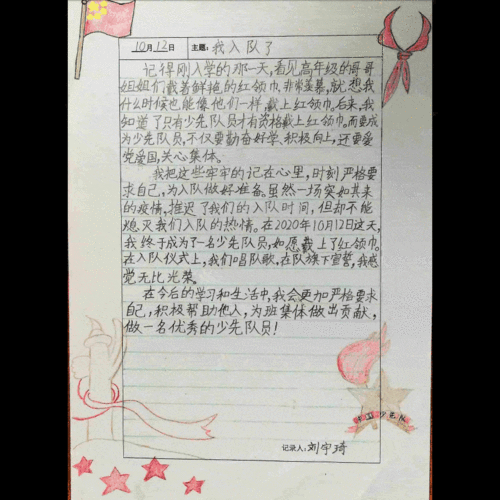 10月12日 主题：我入队了
记得刚入学的那一天,看见高年级的哥哥
姐姐们戴着鲜艳的红领巾,非常羡慕,就想我
什么时候也能像他们一样戴上红领巾。后来,我
知道了只有少先队员才有资格戴上红领巾。而要成
为少先队员,不仅要勤奋好学、积极向上,还要爱
党爱国,关心集体。
我把这些牢牢的记在心里,时刻严格要
求自己,为入队做好准备。虽然一场突如其来
的疫情,推迟了我们的入队时间,但却不能
熄灭我们入队的热情。在2020年10月12日这天,
我终于成为了一名少先队员,如愿戴上了红领巾。
在入队仪式上,我们唱队歌,在队旗下宣誓,我感
觉无比光荣。
在今后的学习和生活中,我会更加严格要求
自己,积极帮助他人,为班集体做出贡献,
做一名优秀的少先队员!
记录人:刘宇琦